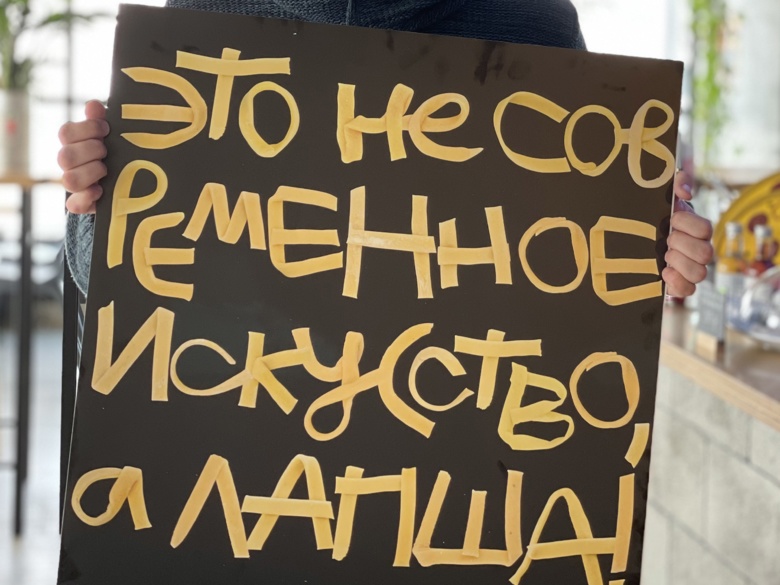 ЭТО НЕ СОВ
РЕМЕННОЕ
ИСКУССТВО,
а ЛАПША!